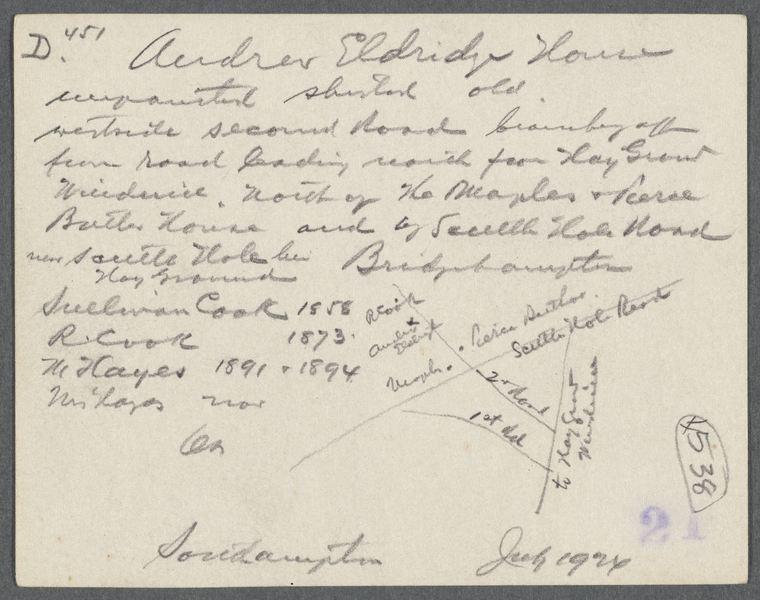 D. 451
Andrew Eldridge House
unpainted shingled old
westside second Road branching off
from road leading north from Hay Ground
Windmill. North of the Maples & Pierce
Butler House and by Scuttle Hole Road
near Scuttle Hole Bridgehampton
Hay Ground
Sullivan Cook 1858
R. Cook 1873
M Hayes 1891 & 1894
Mr Hayes now
R Cook
Andrew Eldridge
Maples
Pierce Butler
Scuttle Hole Road
2nd Road
1st Rd
to Hay Ground
Windmill
4538
21
Southampton July 1924